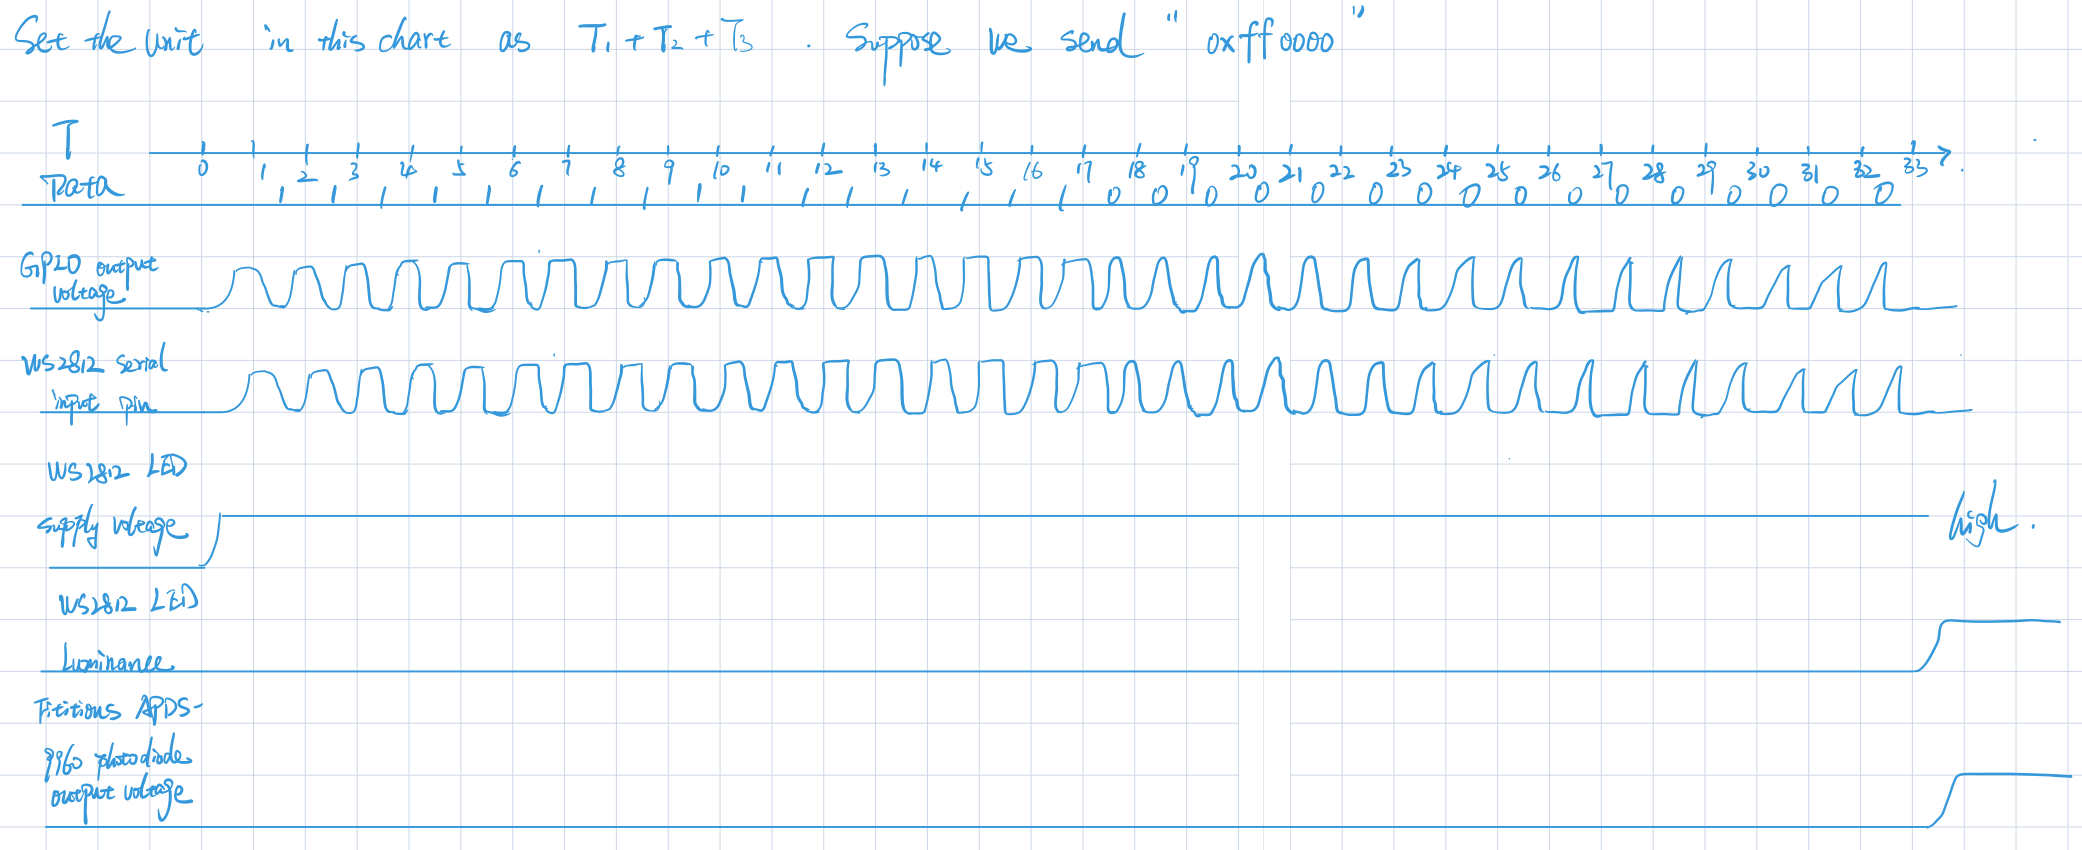 Set the unit in this chart as T1 + T2 + T3 . Suppose we send "0xff0000"
T
0 1 2 3 4 5 6 7 8 9 10 11 12 13 14 15 16 17 18 19 20 21 22 23 24 25 26 27 28 29 30 31 32 33
Data 1 1 1 1 1 1 1 1 1 1 1 1 1 1 1 1 0 0 0 0 0 0 0 0 0 0 0 0 0 0 0 0
GPIO output
voltage
WS2812 serial
input pin
WS2812 LED
supply voltage
high.
WS2812 LED
Luminance
Fititious APDS-
9960 photodiode
output voltage